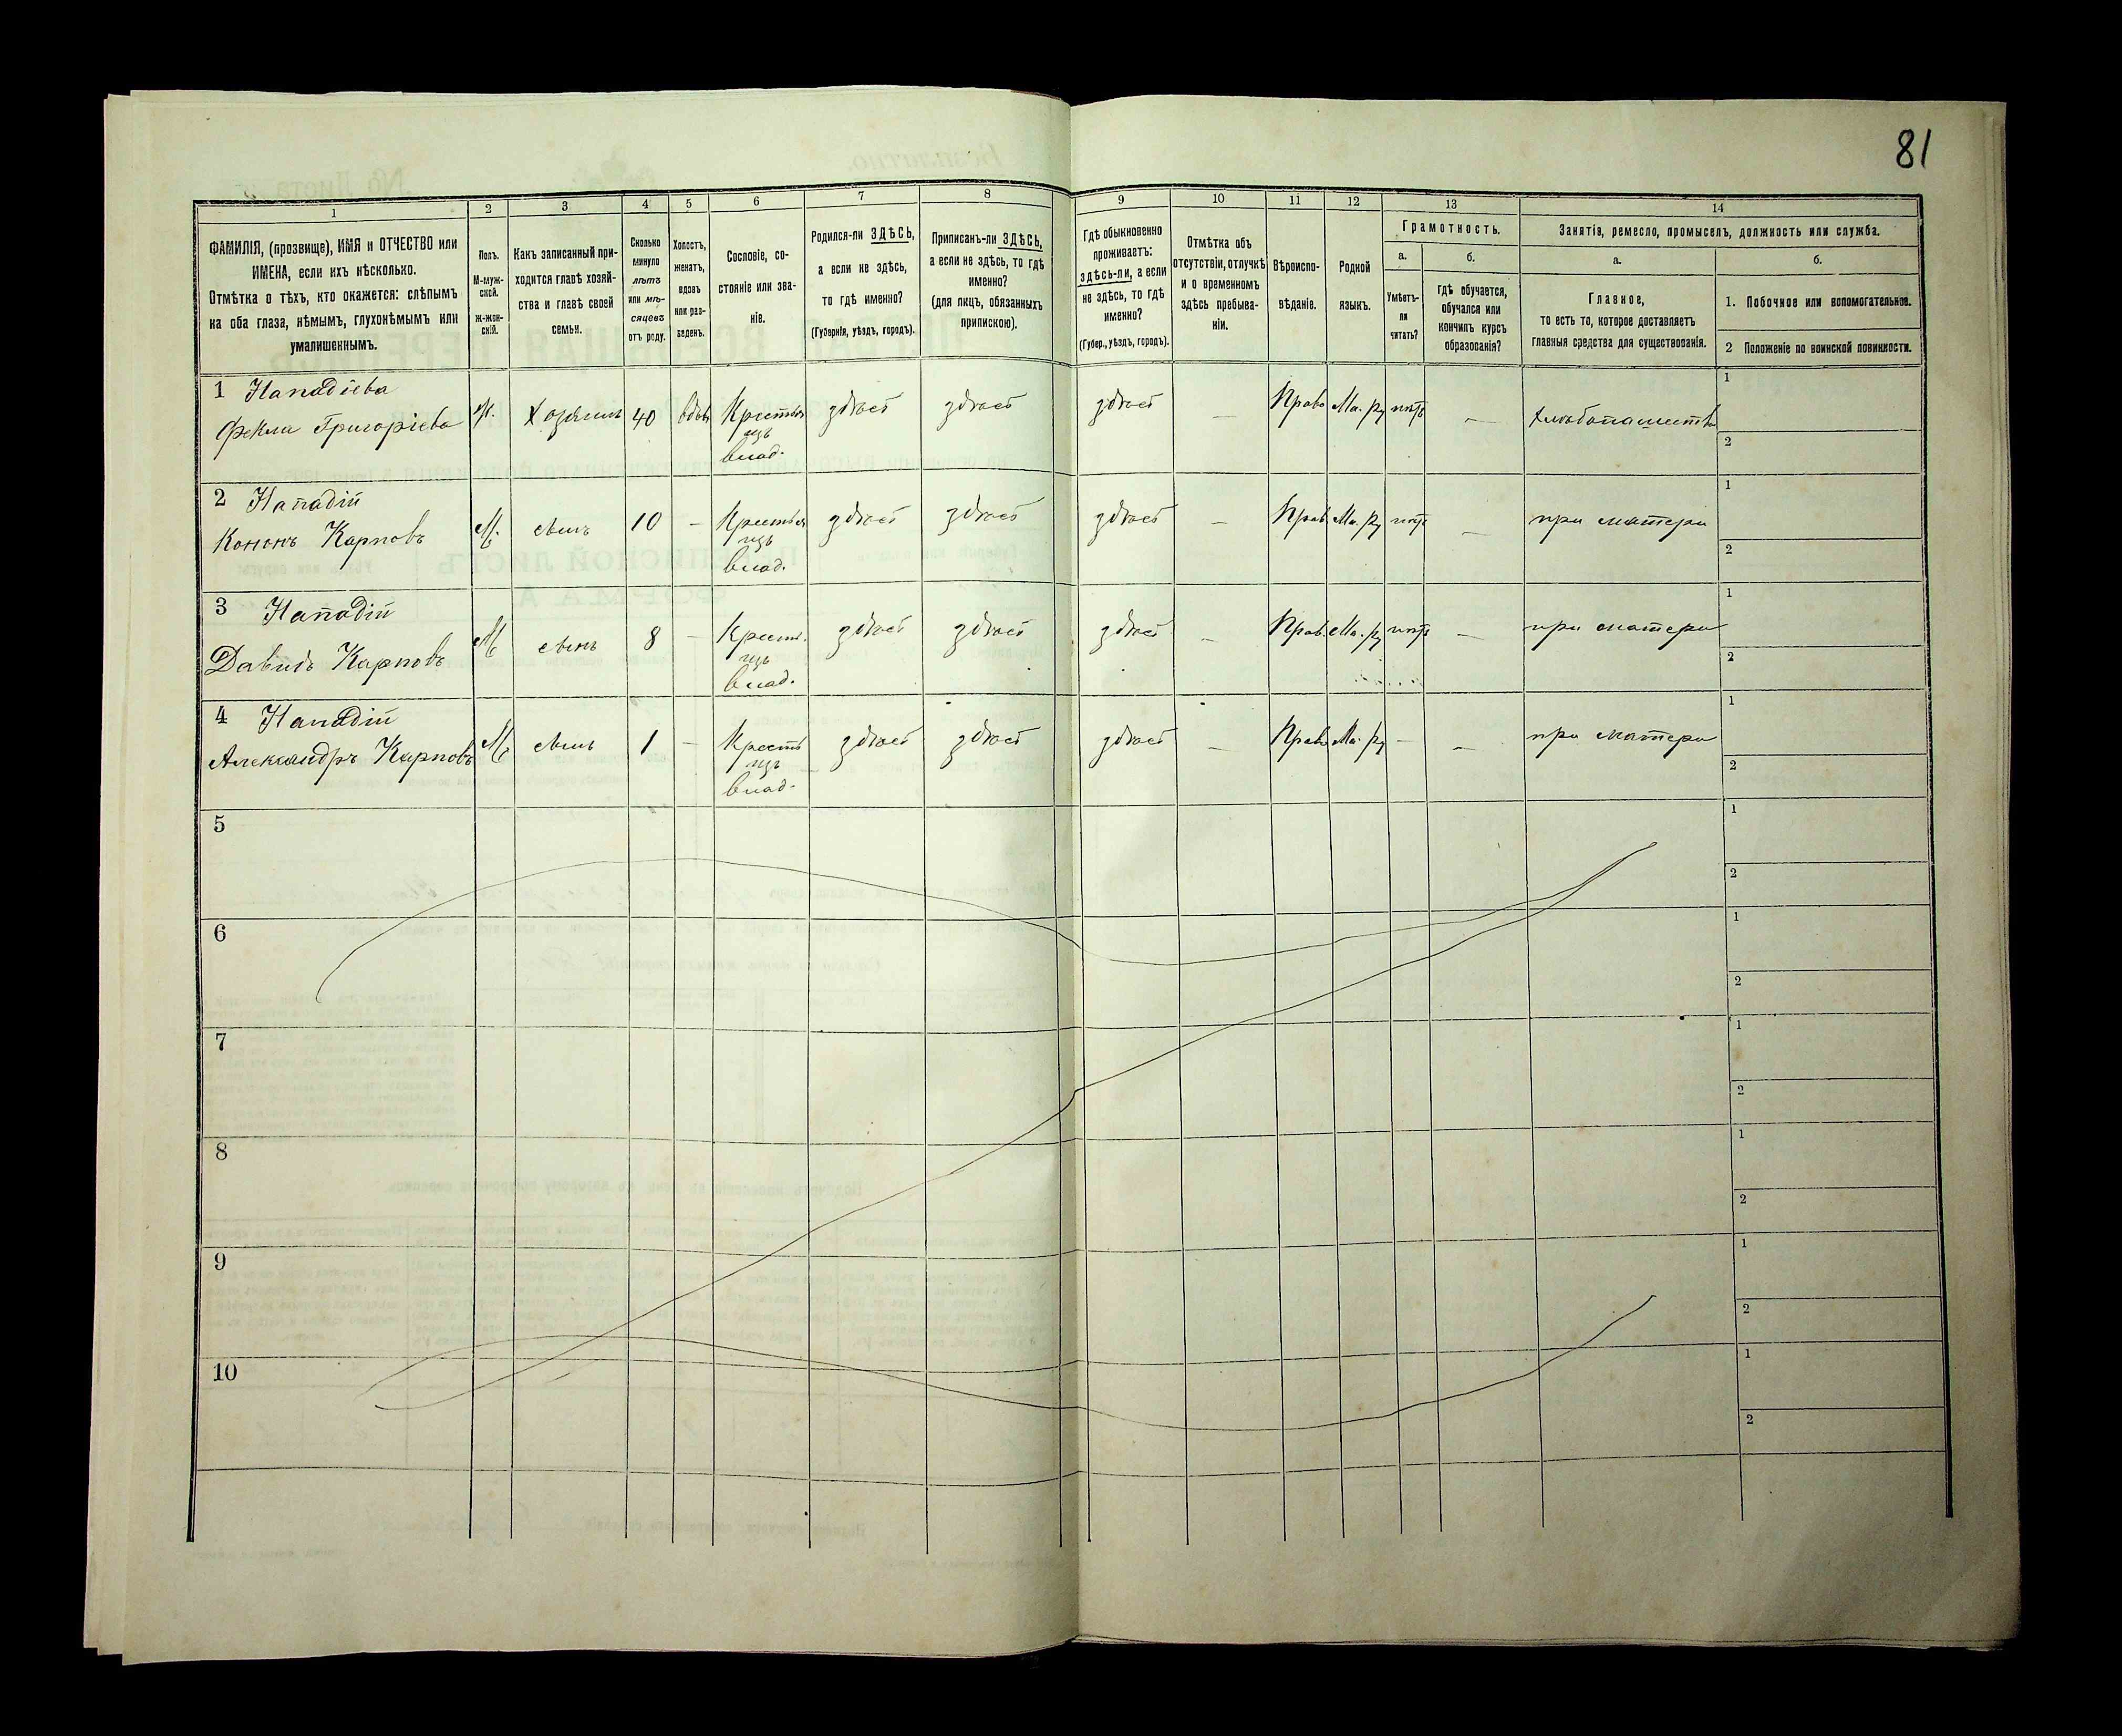 81
1
2
3
4
5
6
7
8
9
10
11
12
13
14
ФАМИЛІЯ, (прозвище), ИМЯ и ОТЧЕСТВО или
ИМЕНА, если ихъ нѣсколько.
Отмѣтка о тѣхъ, кто окажется: слѣпымъ
на оба глаза, нѣмымъ, глухонѣмымъ или
умалишеннымъ.
Полъ.
М-муж-
ской.
Ж-жен-
скій.
Какъ записанный при-
ходится главѣ хозяй-
ства и главѣ своей
семьи.
Сколько
минуло
лѣтъ
или мѣ-
сяцевъ
отъ роду.
Холостъ,
женатъ,
вдовъ
или раз-
веденъ.
Сословіе, со-
стояніе или зва-
ніе.
Родился-ли ЗДѢСЬ,
а если не здѣсь,
то гдѣ именно?
(Губернія, уѣздъ, городъ).
Приписанъ-ли ЗДѢСЬ,
а если не здѣсь, то гдѣ
именно?
(для лицъ, обязанныхъ
припискою).
Гдѣ обыкновенно
проживаетъ:
здѣсь-ли, а если
не здѣсь, то гдѣ
именно?
(Губер., уѣздъ, городъ).
Отмѣтка объ
отсутствіи, отлучкѣ
и о временномъ
здѣсь пребыва-
ніи.
Вѣроиспо-
вѣданіе.
Родной
языкъ.
Грамотность.
а.
Умѣетъ-
ли
читать?
б.
гдѣ обучается,
обучался или
кончилъ курсъ
образованія?
Занятія, ремесло, промыселъ, должность или служба.
а.
Главное,
то есть то, которое доставляетъ
главныя средства для существованія.
б.
1. Побочное или вспомогательное.
2 Положеніе по воинской повинности.
1 Нападіева
Фекла Григоріева
Ж.
Хозяинъ
40
вдова
Крестьян
изъ
влад.
здѣсь
здѣсь
здѣсь
—
Право
Ма. ру
нѣтъ
—
хлѣбопашество
1
2
2 Нападій
Кононъ Карповъ
М.
сынъ
10
—
Крестьян
изъ
влад.
здѣсь
здѣсь
здѣсь
—
Прав.
Ма. ру
нѣтъ
—
при матери
1
2
3 Нападій
Давидъ Карповъ
М
сынъ
8
—
Крест.
изъ
влад.
здѣсь
здѣсь
здѣсь
—
Прав.
Ма. ру
нѣтъ
—
при матери
1
2
4 Нападій
Александръ Карповъ
М
сынъ
1
—
Крест
изъ
влад.
здѣсь
здѣсь
здѣсь
—
Право
Ма. ру
—
—
при матери
1
2
5
1
2
6
1
2
7
1
2
8
1
2
9
1
2
10
1
2